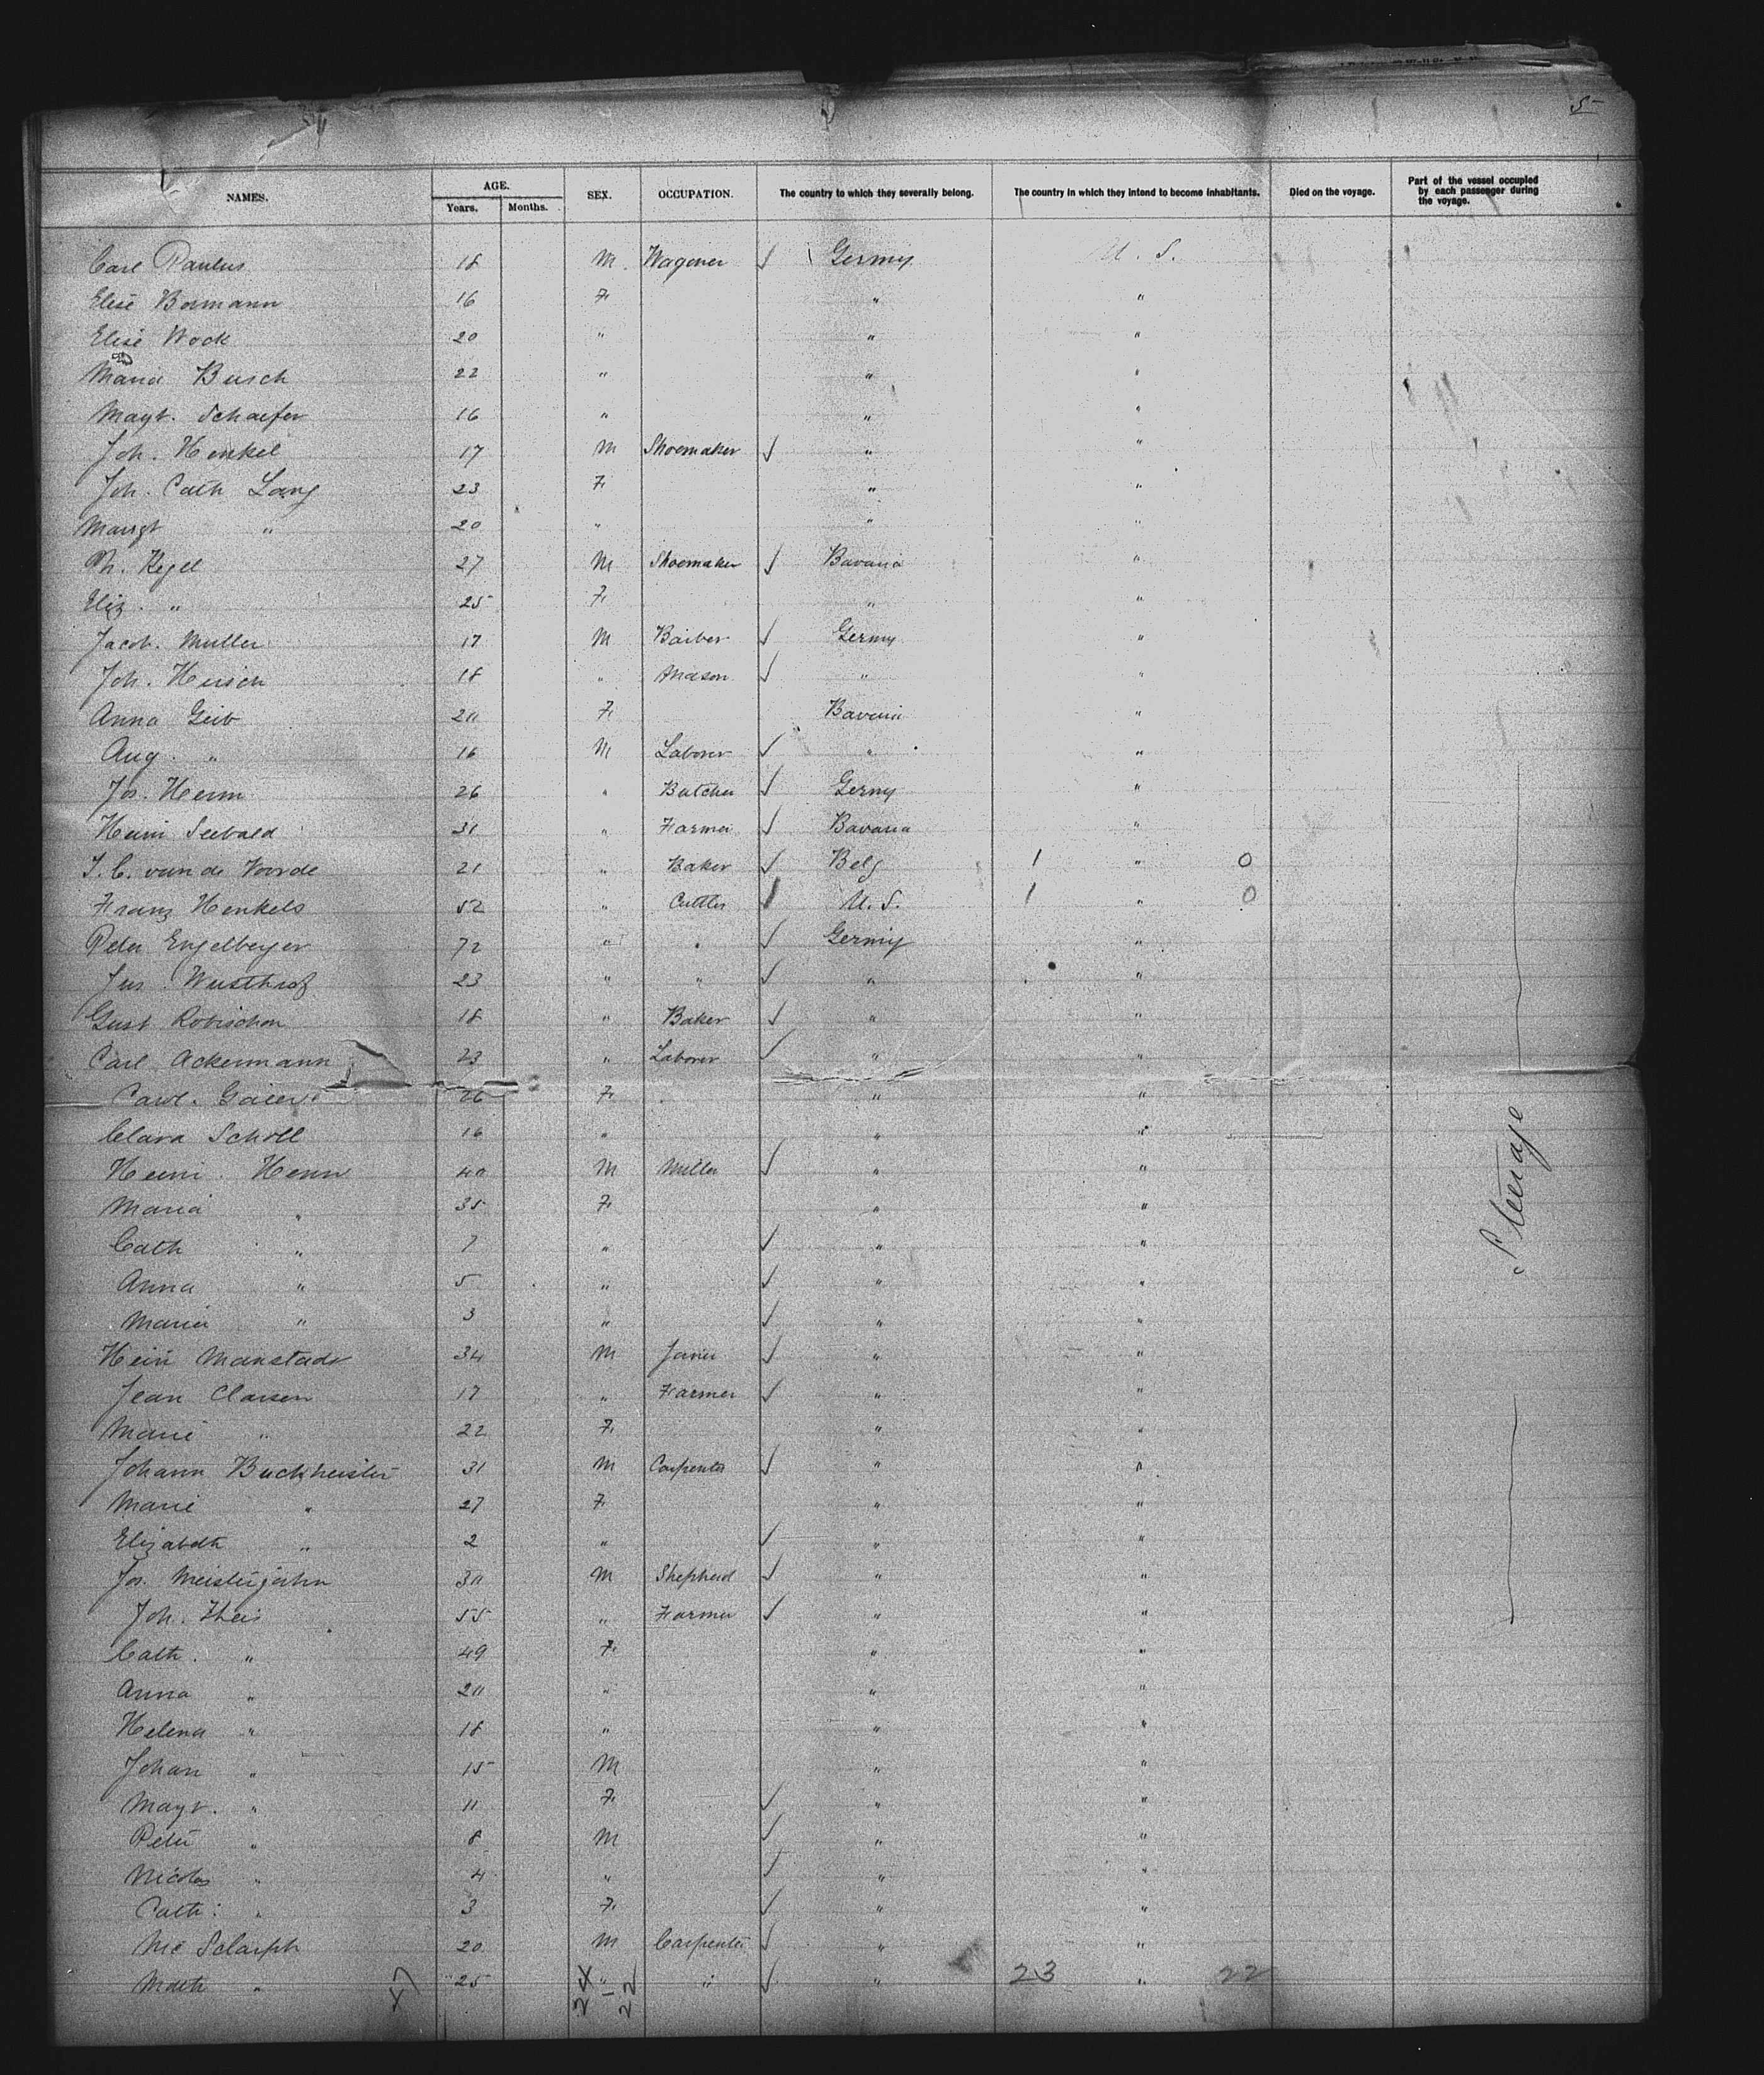 5
NAMES. AGE. SEX. OCCUPATION. The country to which they severally belong. The country in which they intend to become inhabitants. Died on the voyage. Part of the vessel occupied by each passenger during the voyage.
Years. Months.
Carl Paulus 18 M. Wagoner √ Germy. U. S.
Elise Bormann 16 F. " "
Elise Wock 20 " " "
Maria Busch 22 " " "
Magt. Schaefer 16 " " "
Joh. Henkel 17 M Shoemaker √ " "
Joh. Cath Lang 23 F. " "
Margt " 20 " " "
Ph. Kegel 27 M Shoemaker √ Bavaria "
Eliz. " 25 F. " "
Jacob. Muller 17 M Barber √ Germy "
Joh. Hirsch 18 " Mason √ " "
Anna Geib 20 F. Bavaria "
Aug. " 16 M Laborer √ " "
Jos. Herm 26 " Butcher √ Germy "
Heinr Seebald 31 " Farmer √ Bavaria "
J. C. van de Voorde 21 " Baker √ Belg 1 " 0
Franz Henkels 52 " Cuttler U. S. 1 " 0
Peter Engelberger 72 " " √ Germy "
Jus. Wusthof 23 " " √ " "
Gust Robischon 18 " Baker √ " "
Carl Ackermann 23 " Laborer √ " "
Carol. Gaier 26 F. " "
Clara Scholl 16 " " "
Heinr. Henn 40 M Miller √ " "
Maria " 35 F. " "
Cath " 7 " √ " "
Anna " 5 " √ " "
Maria " 3 " √ " "
Steerage
Hein Manstadt 34 M Joiner √ " "
Jean Classen 17 " Farmer √ " "
Marie " 22 F. " "
Johann Buckheister 31 M Carpenter √ " "
Marie " 27 F. " "
Elizabeth " 2 " √ " "
Jos. Meisterjahn 30 M Shepherd √ " "
Joh. Theis 55 " Farmer √ " "
Cath. " 49 F. " "
Anna " 20 " " "
Helena " 18 " " "
Johan " 15 M " "
Magt. " 11 F. √ " "
Peter " 8 M √ " "
Nicolas " 4 " √ " "
Cath: " 3 F. √ " "
Nic Scharph 20 M Carpenter √ " "
Math " 25 " " √ " 23 " 22
47 24 1 22